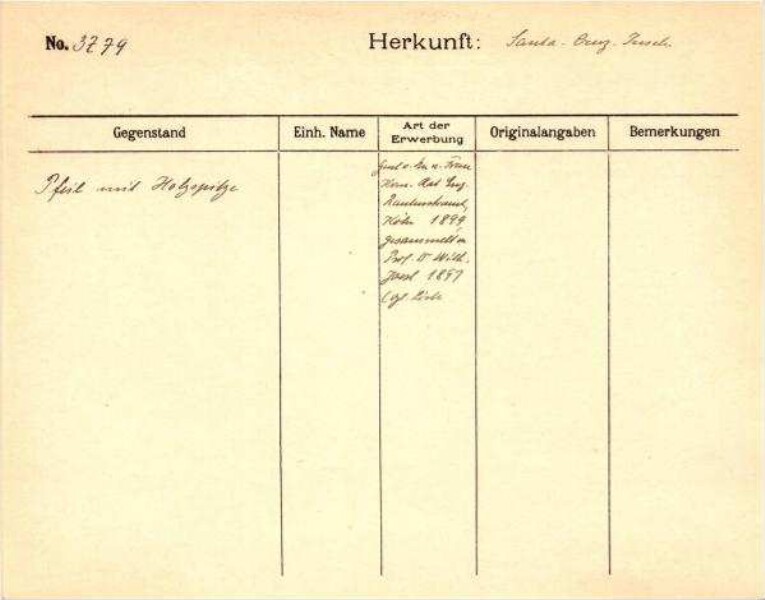 No. 3779 Herkunft: Santa-Cruz-Inseln
Gegenstand Einh. Name Art der Erwerbung Originalangaben Bemerkungen
Pfeil mit Holzspitze
Frau
Kom. Rat Eug.
Rautenstrauch,
Köln 1899
gesammelt v.
Prof. Dr Wilh.
Joest 1897